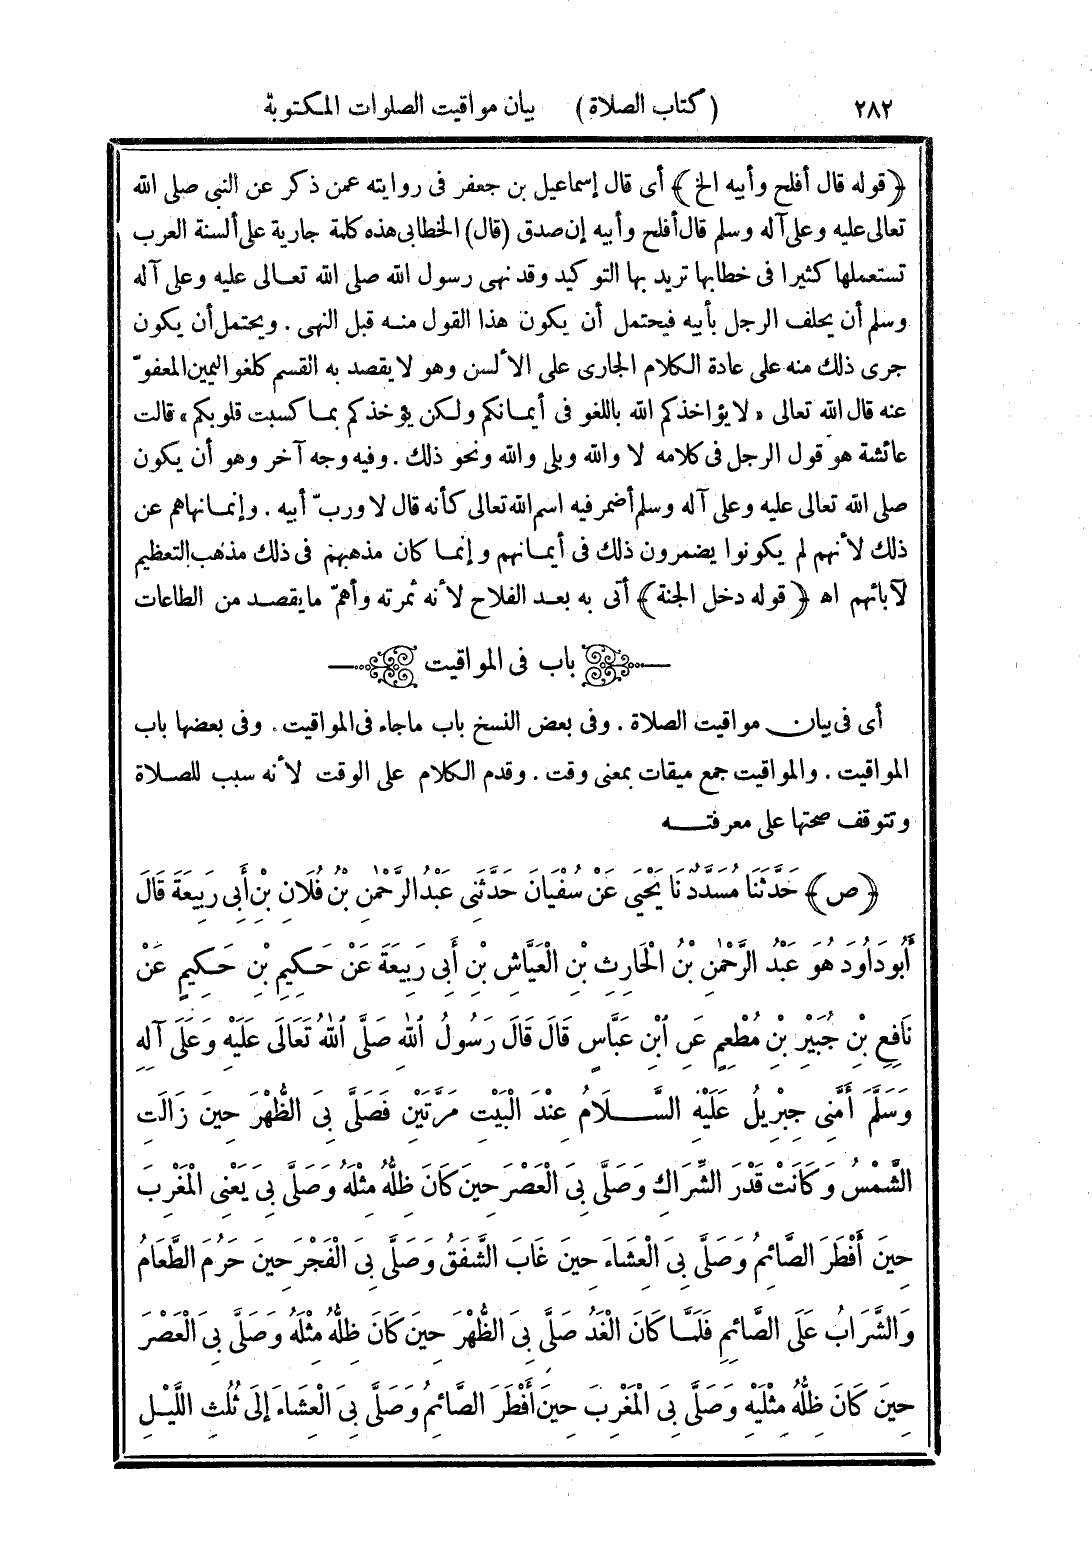 ٢٨٢ (كتاب الصلاة) بيان مواقيت الصلوات المكتوبة
﴿قوله قال أفلح وأبيه الخ﴾ أى قال إسماعيل بن جعفر فى روايته عمن ذكر عن النبى صلى الله
تعالى عليه وعلى آله وسلم قال أفلح وأبيه إن صدق (قال) الخطابى هذه كلمة جارية على ألسنة العرب
تستعملها كثيرا فى خطابها تريد بها التوكيد وقد نهى رسول الله صلى الله تعالى عليه وعلى آله
وسلم أن يحلف الرجل بأبيه فيحتمل أن يكون هذا القول منه قبل النهى . ويحتمل أن يكون
جرى ذلك منه على عادة الكلام الجارى على الألسن وهو لا يقصد به القسم كلغو اليمين المعفوّ
عنه قال الله تعالى « لا يؤاخذكم الله باللغو فى أيمانكم ولكن يؤخذكم بما كسبت قلوبكم » قالت
عائشة هو قول الرجل فى كلامه لا والله وبلى والله ونحو ذلك . وفيه وجه آخر وهو أن يكون
صلى الله تعالى عليه وعلى آله وسلم أضمر فيه اسم الله تعالى كأنه قال لا وربّ أبيه . وإنما نهاهم عن
ذلك لأنهم لم يكونوا يضمرون ذلك فى أيمانهم وإنما كان مذهبهم فى ذلك مذهب التعظيم
لآبائهم اه ﴿قوله دخل الجنة﴾ أتى به بعد الفلاح لأنه ثمرته وأهمّ ما يقصد من الطاعات
باب فى المواقيت
أى فى بيان مواقيت الصلاة . وفى بعض النسخ باب ماجاء فى المواقيت . وفى بعضها باب
المواقيت . والمواقيت جمع ميقات بمعنى وقت . وقدم الكلام على الوقت لأنه سبب للصلاة
وتتوقف صحتها على معرفته
﴿ص﴾ حَدَّثَنَا مُسَدَّدٌ نَا يَحْيَى عَنْ سُفْيَانَ حَدَّثَنِى عَبْدُ الرَّحْمٰنِ بْنُ فُلَانِ بْنِ أَبِى رَبِيعَةَ قَالَ
أَبُو دَاوُدَ هُوَ عَبْدُ الرَّحْمٰنِ بْنُ الْحَارِثِ بْنِ الْعَيَّاشِ بْنِ أَبِى رَبِيعَةَ عَنْ حَكِيمِ بْنِ حَكِيمٍ عَنْ
نَافِعِ بْنِ جُبَيْرِ بْنِ مُطْعِمٍ عَنِ ابْنِ عَبَّاسٍ قَالَ قَالَ رَسُولُ اللهِ صَلَّى اللهُ تَعَالَى عَلَيْهِ وَعَلَى آلِهِ
وَسَلَّمَ أَمَّنِى جِبْرِيلُ عَلَيْهِ السَّلَامُ عِنْدَ الْبَيْتِ مَرَّتَيْنِ فَصَلَّى بِىَ الظُّهْرَ حِينَ زَالَتِ
الشَّمْسُ وَكَانَتْ قَدْرَ الشِّرَاكِ وَصَلَّى بِىَ الْعَصْرَ حِينَ كَانَ ظِلُّهُ مِثْلَهُ وَصَلَّى بِى يَعْنِى الْمَغْرِبَ
حِينَ أَفْطَرَ الصَّائِمُ وَصَلَّى بِىَ الْعِشَاءَ حِينَ غَابَ الشَّفَقُ وَصَلَّى بِىَ الْفَجْرَ حِينَ حَرُمَ الطَّعَامُ
وَالشَّرَابُ عَلَى الصَّائِمِ فَلَمَّا كَانَ الْغَدُ صَلَّى بِىَ الظُّهْرَ حِينَ كَانَ ظِلُّهُ مِثْلَهُ وَصَلَّى بِىَ الْعَصْرَ
حِينَ كَانَ ظِلُّهُ مِثْلَيْهِ وَصَلَّى بِىَ الْمَغْرِبَ حِينَ أَفْطَرَ الصَّائِمُ وَصَلَّى بِىَ الْعِشَاءَ إِلَى ثُلُثِ اللَّيْلِ